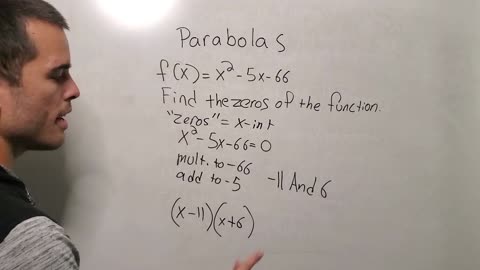 Parabolas
f(x) = x² - 5x - 66
Find the zeros of the function.
"zeros" = x-int
x² - 5x - 66 = 0
mult. to -66
add to -5 -11 And 6
(x - 11)(x + 6)